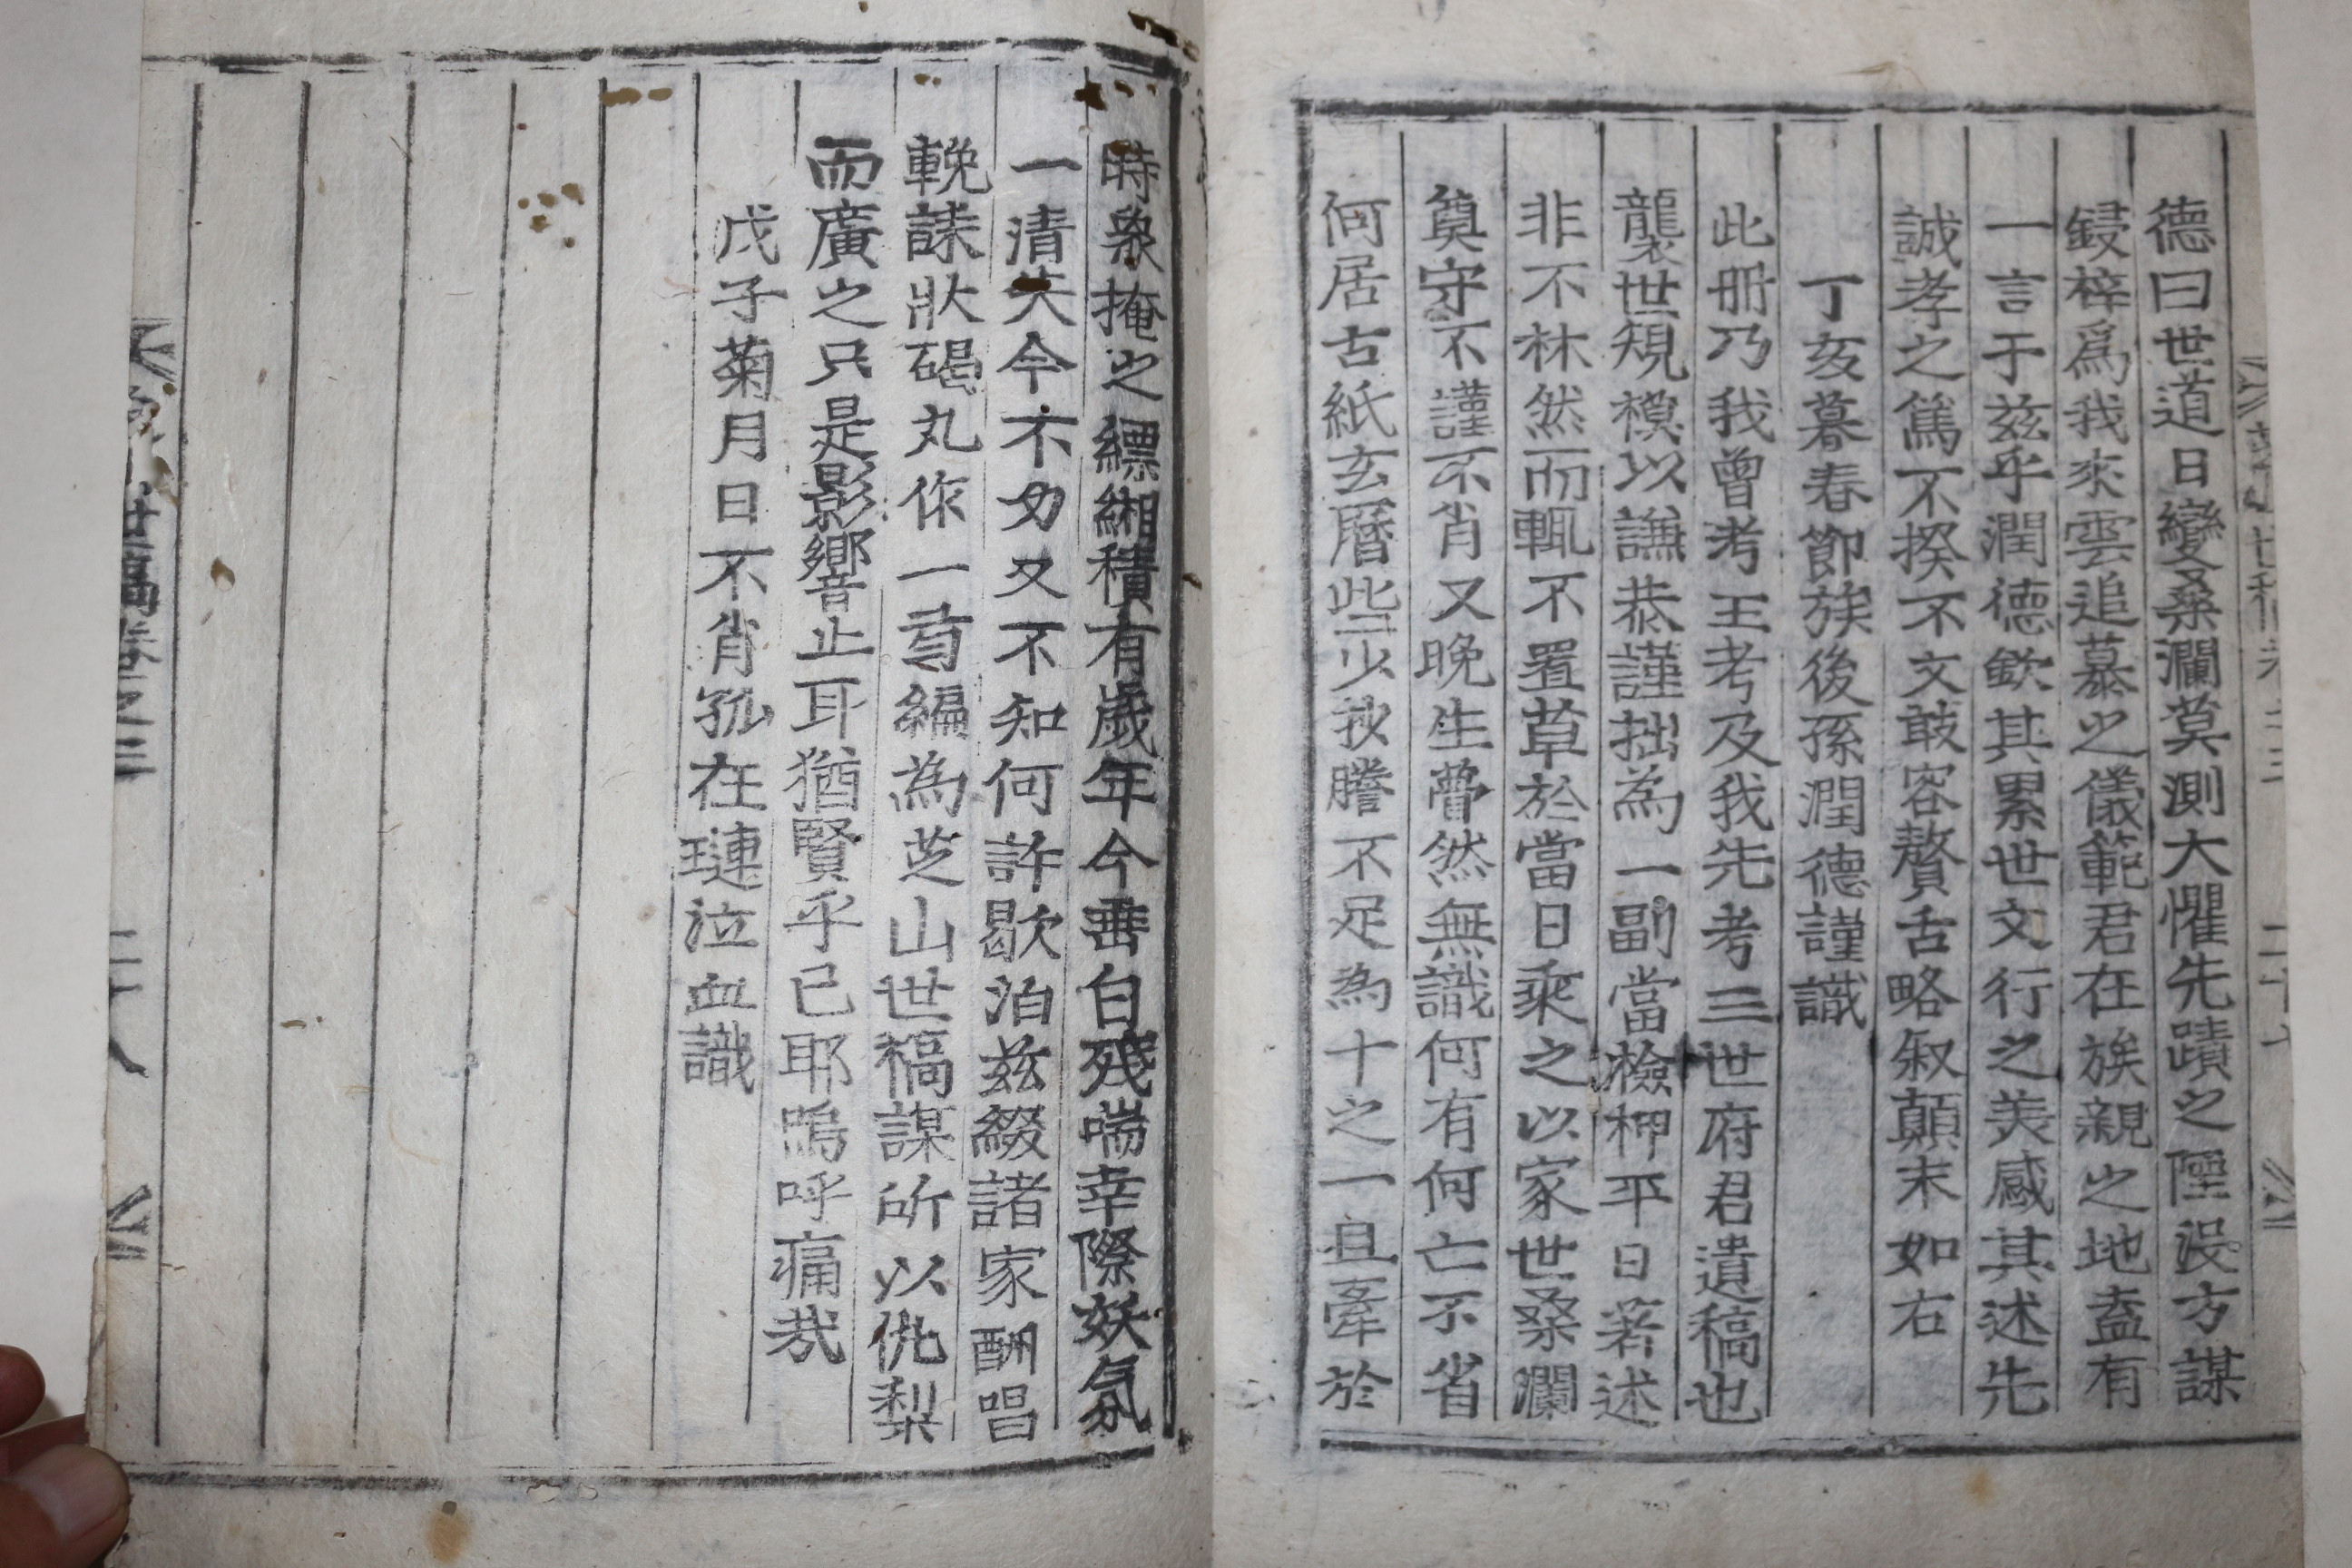 德曰世道日變桑瀾莫測大懼先蹟之堙沒方謀
鋟梓爲我來雲追慕之儀範君在族親之地盍有
一言于玆乎潤德欽其累世文行之美感其述先
誠孝之篤不揆不文敢容贅舌略叙顛末如右
丁亥暮春節族後孫潤德謹識
此冊乃我曾考王考及我先考三世府君遺稿也
襲世規模以謙恭謹拙為一副當檢柙平日著述
非不林然而輒不置草於當日乘之以家世桑瀾
莫守不謹不肖又晚生瞢然無識何有何亡不省
何居古紙玄曆些少收謄不足為十之一且牽於
時衆掩之縹緗積有歲年今垂白殘喘幸際妖氛
一清失今不力又不知何許歇泊玆綴諸家酬唱
輓誄狀碣丸作一首編為芝山世稿謀所以侊梨
而廣之只是影響止耳猶賢乎已耶嗚呼痛哉
戊子菊月日不肖孤在璉泣血識
世稿卷之三
二十八